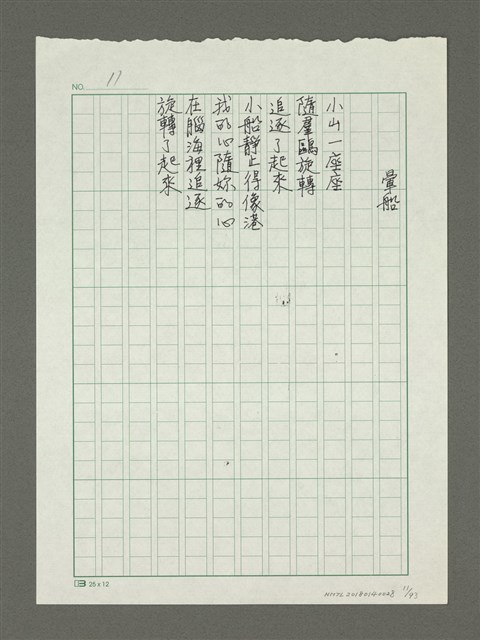 NO. 17
暈船
小山一座座
隨羣鷗旋轉
追逐了起來
小船靜止得像港
我的心隨妳的心
在腦海裡追逐
旋轉了起來
25 x 12
NMTL20180140028
11/93